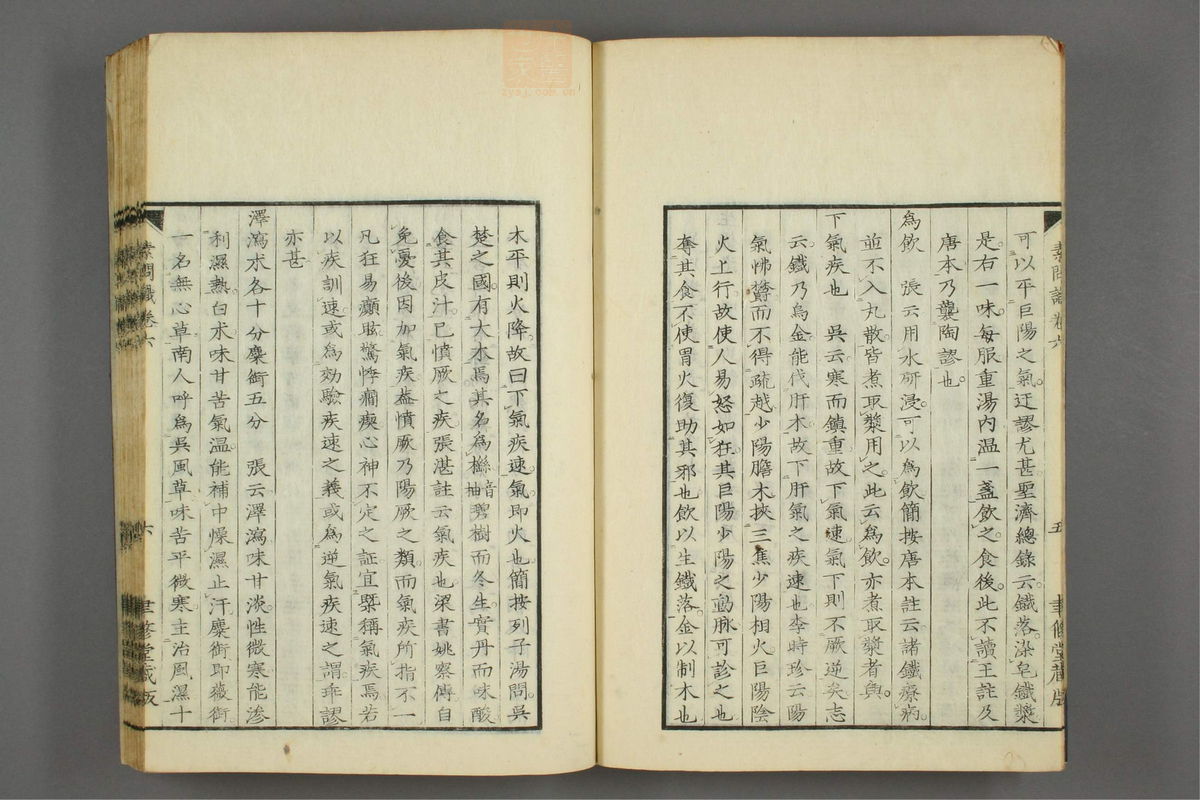 素問識卷六
五
聿修堂藏版
可以平巨陽之氣迂謬尤甚聖濟總錄云鐵落染皂鐵漿
是右一味每服重湯內温一盞飲之食後此不讀王註及
唐本乃襲陶謬也
爲飲 張云用水研浸可以爲飲簡按唐本註云諸鐵療病
並不入丸散皆煮取漿用之此云爲飲亦煮取漿者與
下氣疾也 吳云寒而鎮重故下氣速氣下則不厥逆矣志
云鐵乃烏金能伐肝木故下肝氣之疾速也李時珍云陽
氣怫鬱而不得疏越少陽膽木挾三焦少陽相火巨陽陰
火上行故使人易怒如狂其巨陽少陽之動脉可診之也
奪其食不使胃火復助其邪也飲以生鐵落金以制木也
木平則火降故曰下氣疾速氣即火也簡按列子湯問吳
楚之國有大木焉其名爲櫾音柚碧樹而冬生實丹而味酸
食其皮汁已憤厥之疾張湛註云氣疾也梁書姚察傳自
免憂後因加氣疾蓋憤厥乃陽厥之類而氣疾所指不一
凡狂易癲眩驚悸癇瘈心神不定之証宜槩稱氣疾焉若
以疾訓速或爲効驗疾速之義或爲逆氣疾速之謂乖謬
亦甚
澤瀉朮各十分麋銜五分 張云澤瀉味甘淡性微寒能滲
利濕熱白朮味甘苦氣温能補中燥濕止汗麋銜即薇銜
一名無心草南人呼爲吳風草味苦平微寒主治風濕十
素問識卷六
六
聿修堂藏版
zysj.com.cn